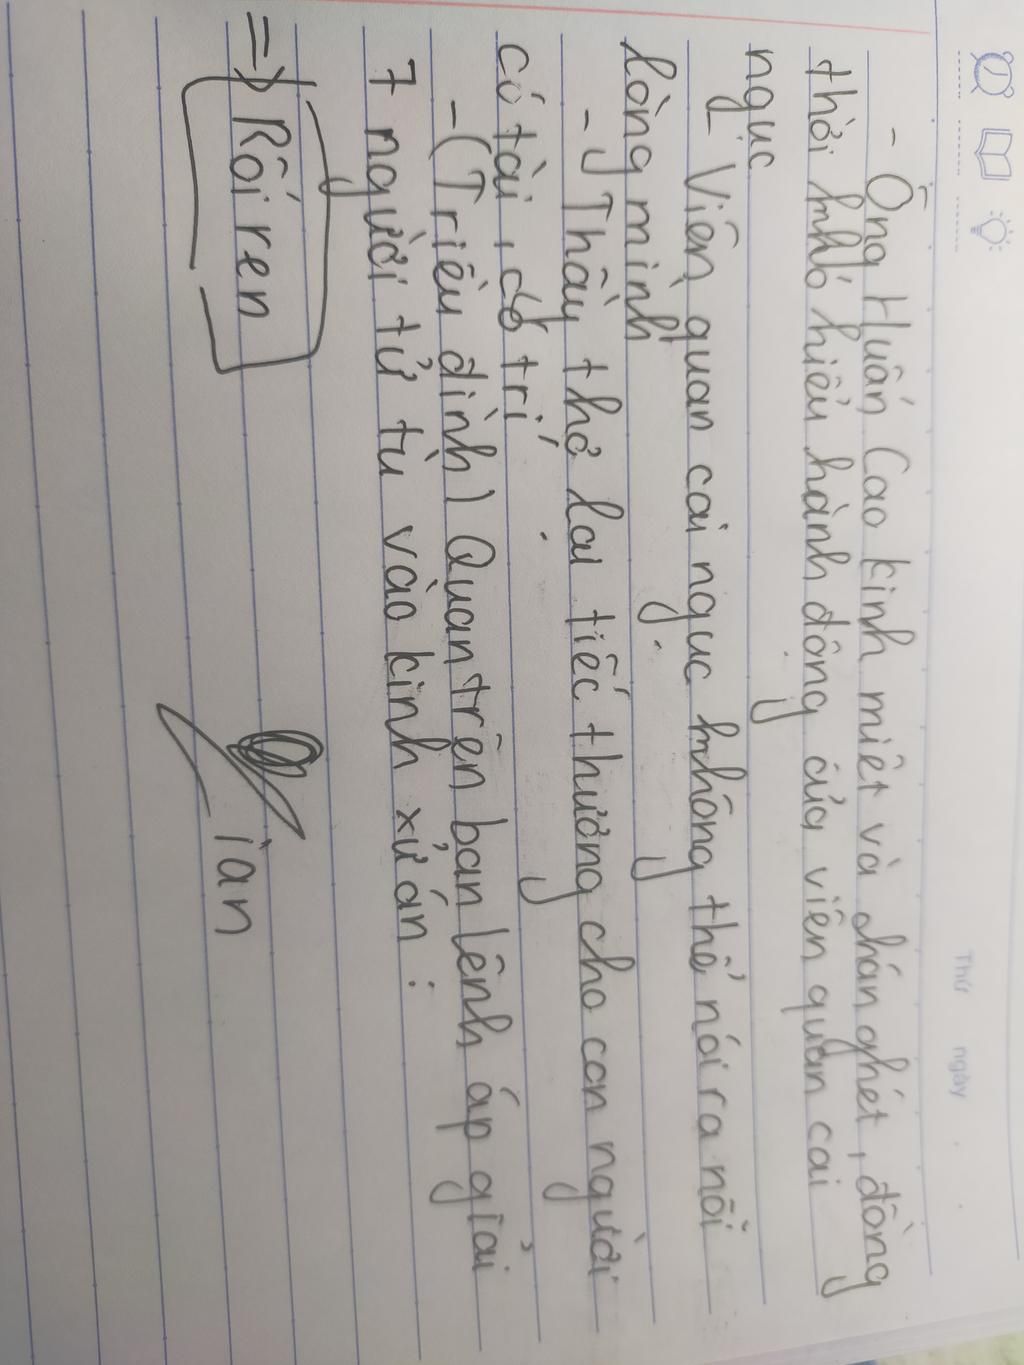 Thứ ngày
- Ông Huấn Cao kinh miệt và chán ghét, đồng
thời khó hiểu hành động của viên quan cai
ngục
- Viên quan cai ngục không thể nói ra nỗi
lòng mình
- Thầy thơ lại tiếc thương cho con người
có tài, có trí
- (Triều đình) Quan trên ban lệnh áp giải
7 người tử tù vào kinh xử án:
=> Rối ren
ian